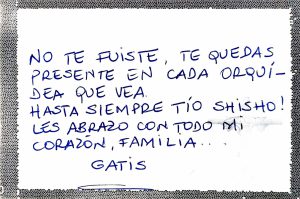 NO TE FUISTE, TE QUEDAS
PRESENTE EN CADA ORQUÍ-
DEA QUE VEA.
HASTA SIEMPRE TÍO SHISHO!
LES ABRAZO CON TODO MI
CORAZÓN, FAMILIA...
GATIS